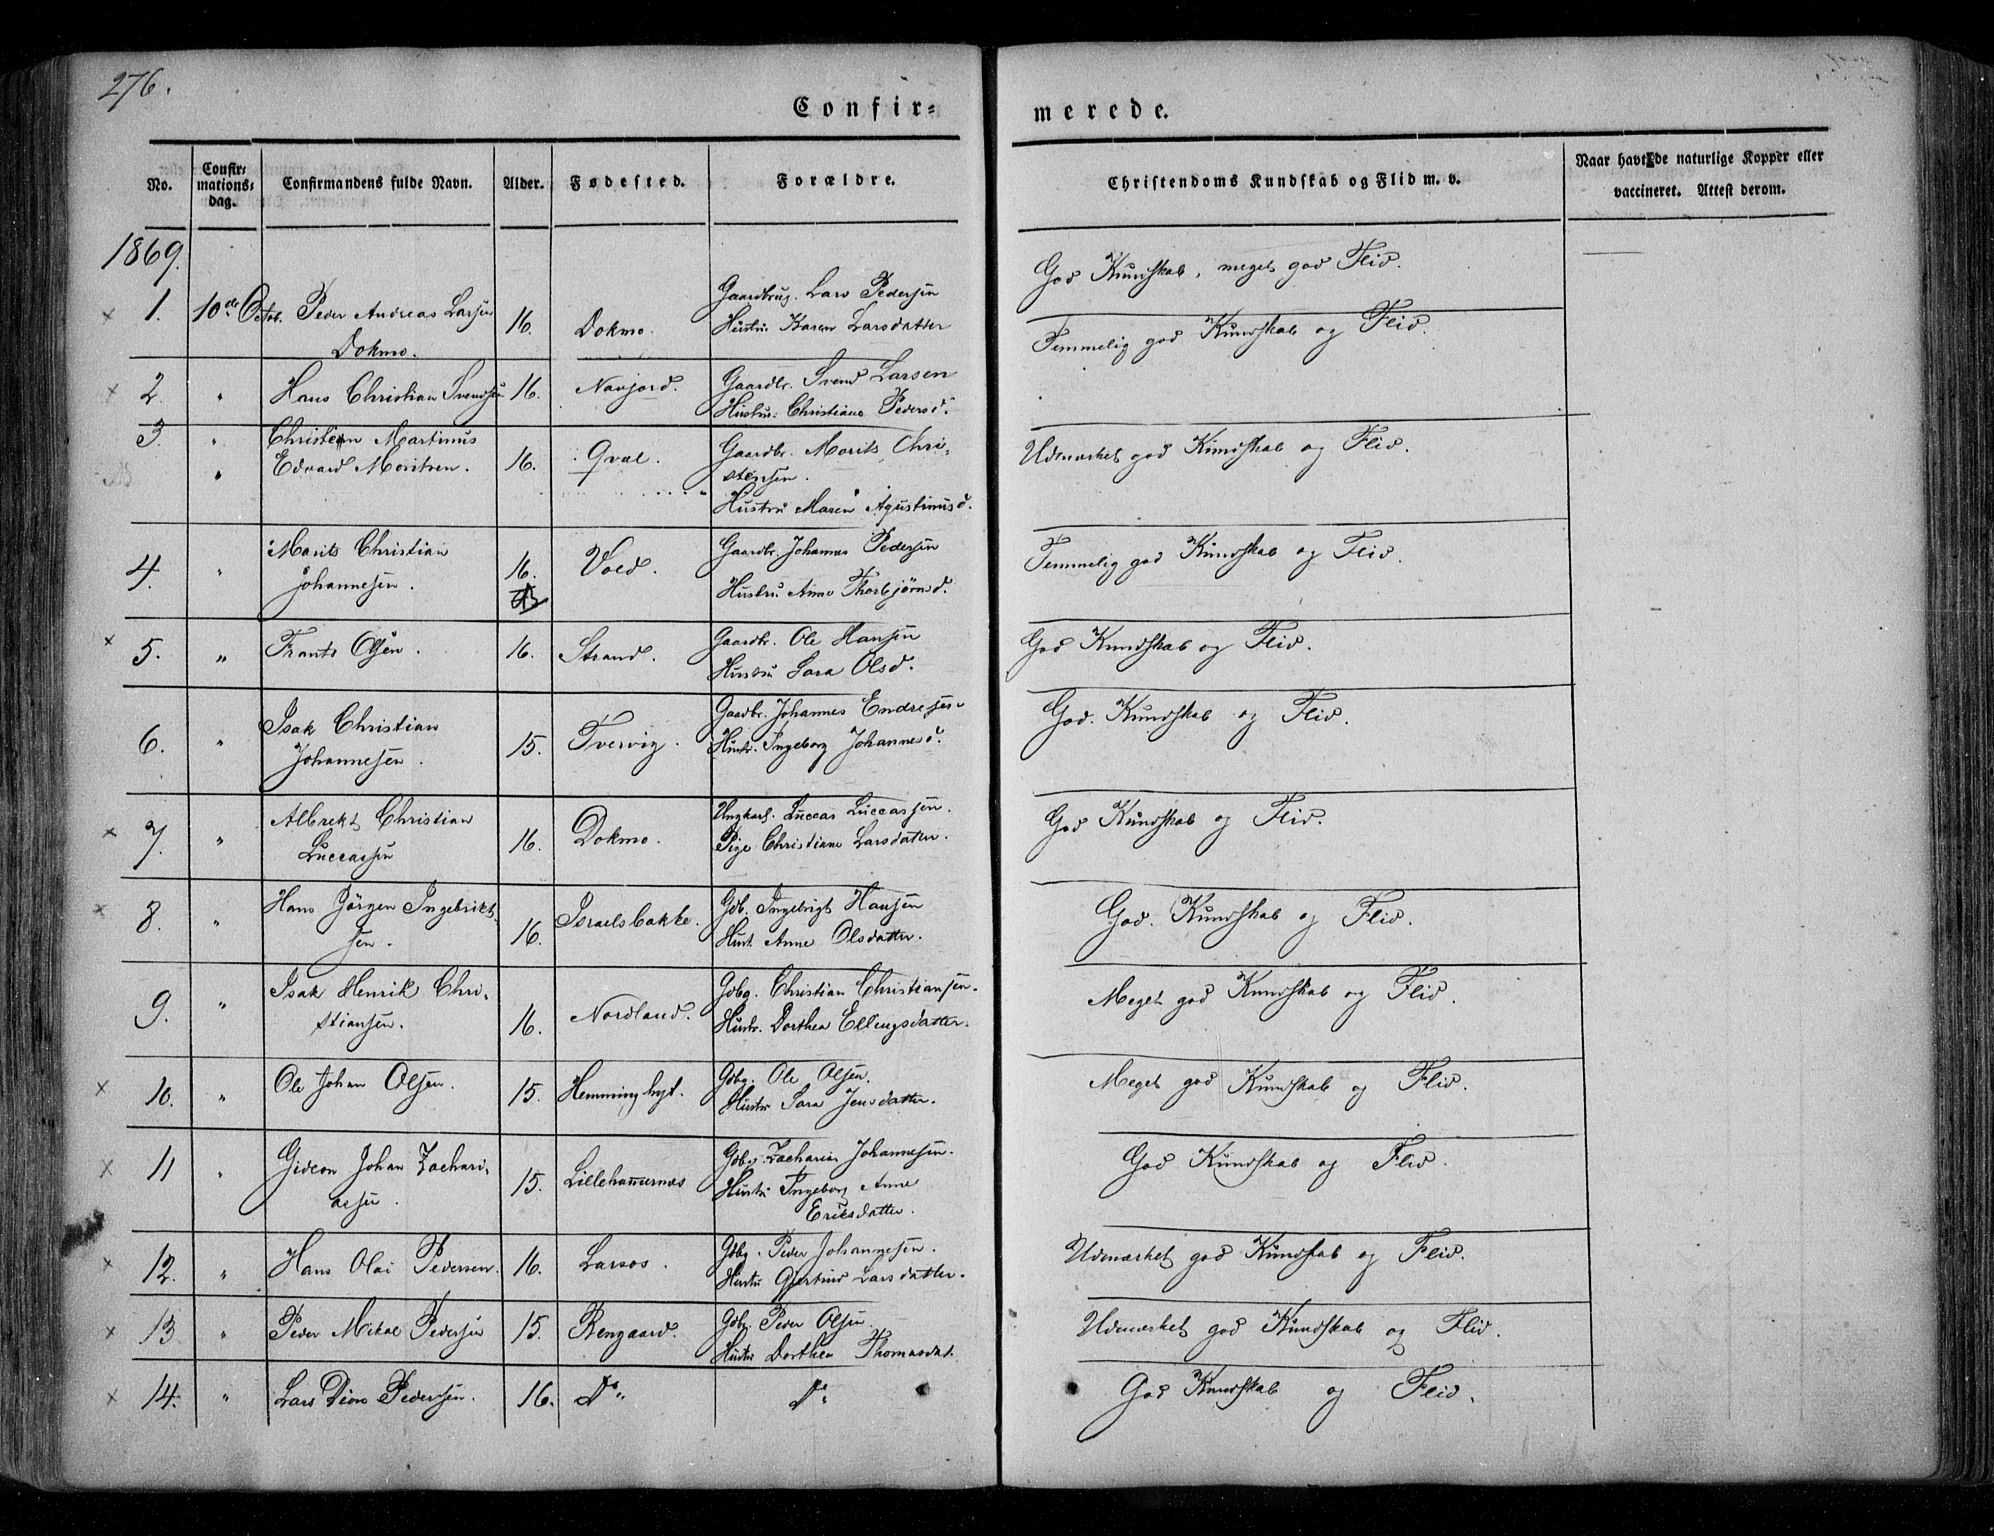 276.
Confir= merede.
No.
Confir-
mations-
dag.
Confirmandens fulde Navn.
Alder.
Fødested.
Forældre.
Christendoms Kundskab og Flid m. v.
Naar havt de naturlige Kopper eller
vaccineret. Attest derom.
1869.
1. 10de Octob. Peder Andreas Larsen 16. Dokmo. Gaardbrug. Lars Pedersen God Kundskab, meget god Flid.
Dokmo. Hustru Karen Larsdatter
2. " Hans Christian Svendsen 16. Navjord. Gaardbr. Svend Larsen Temmelig god Kundskab og Flid.
Hustru: Christiane Pedersd.
3. " Christian Martinus Gaardbr. Morits Chri-
" Edvard Moritsen. 16. Qval. stensen. Udmærket god Kundskab og Flid.
Hustru Maren Agustinusd.
4. " Morits Christian 16. Vold. Gaardbr. Johannes Pedersen Temmelig god Kundskab og Flid.
Johannesen. Hustru Anne Thorbjørnsd.
5. " Frants Olsen. 16. Strand. Gaardbr. Ole Hansen God Kundskab og Flid.
Hustru Sara Olsd.
6. " Isak Christian 15. Tvervig. Gaardbr. Johannes Endresen God. Kundskab og Flid.
Johannesen. Hustr. Ingeborg Johannesd.
7. " Albrekt Christian 16. Dokmo. Ungkarl. Luccas Luccassen. God Kundskab og Flid.
Luccassen Pige Christiane Larsdatter.
8. " Hans Jörgen Ingebrikt- 16. Israelsbakke. Gdb. Ingebrigt Hansen God. Kundskab og Flid.
sen. Hust. Anne Olsdatter.
9. " Isak Henrik Chri- 16. Nordland. Gdbg. Christian Christiansen. Meget god Kundskab og Flid.
stiansen. Hustr. Dorthea Ellingsdatter.
10. " Ole Johan Olsen. 15. Hemminghyt. Gdbg. Ole Olsen. Meget god Kundskab og Flid.
Hustr. Sara Jensdatter.
11 " Gideon Johan Zachari- 15. Lillehammernæs Gdbg. Zacharias Johannesen. God Kundskab og Flid.
asen. Hustru Ingeborg Anne
Eriksdatter.
12. " Hans Olai Pedersen. 16. Larsos. Gdbg. Peder Johannesen. Udmærket god Kundskab og Flid.
Hustru Gjertrud Larsdatter.
13 " Peder Mikal Pedersen 15. Rengaard. Gdbg. Peder Olsen. Udmærket god Kundskab og Flid.
Hustru Dorthea Thomasdat.
14. " Lars Pedersen. 16. Do. Do. God Kundskab og Flid.